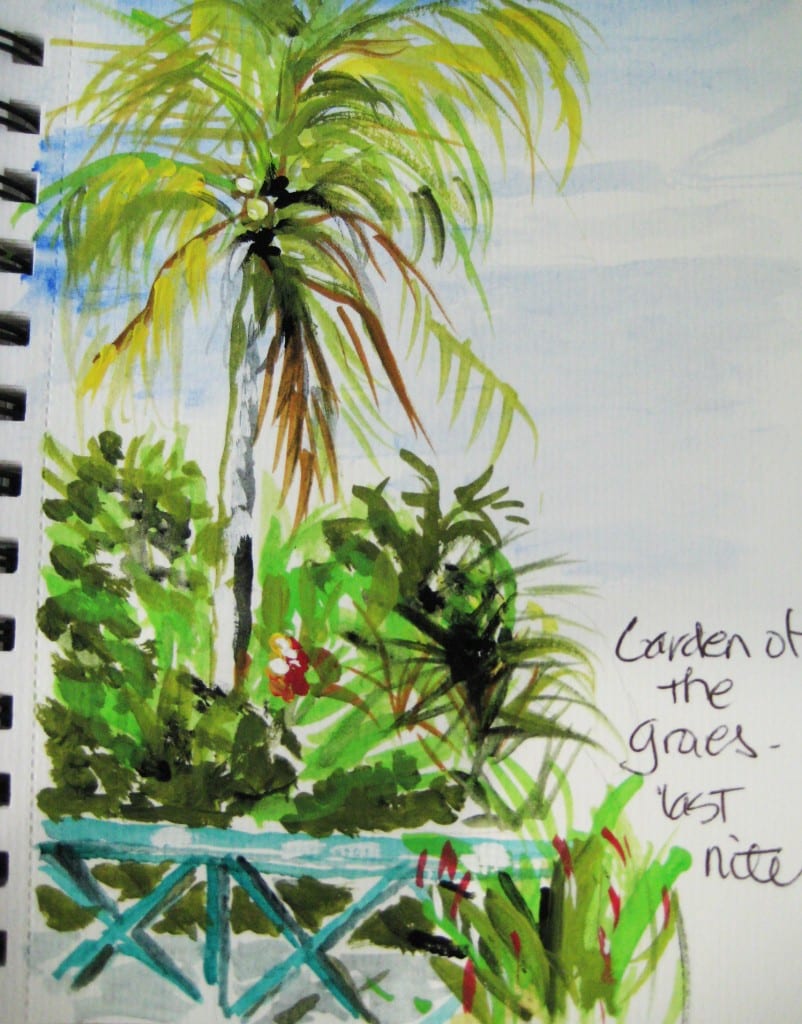 Garden of
the
graes -
last
nite